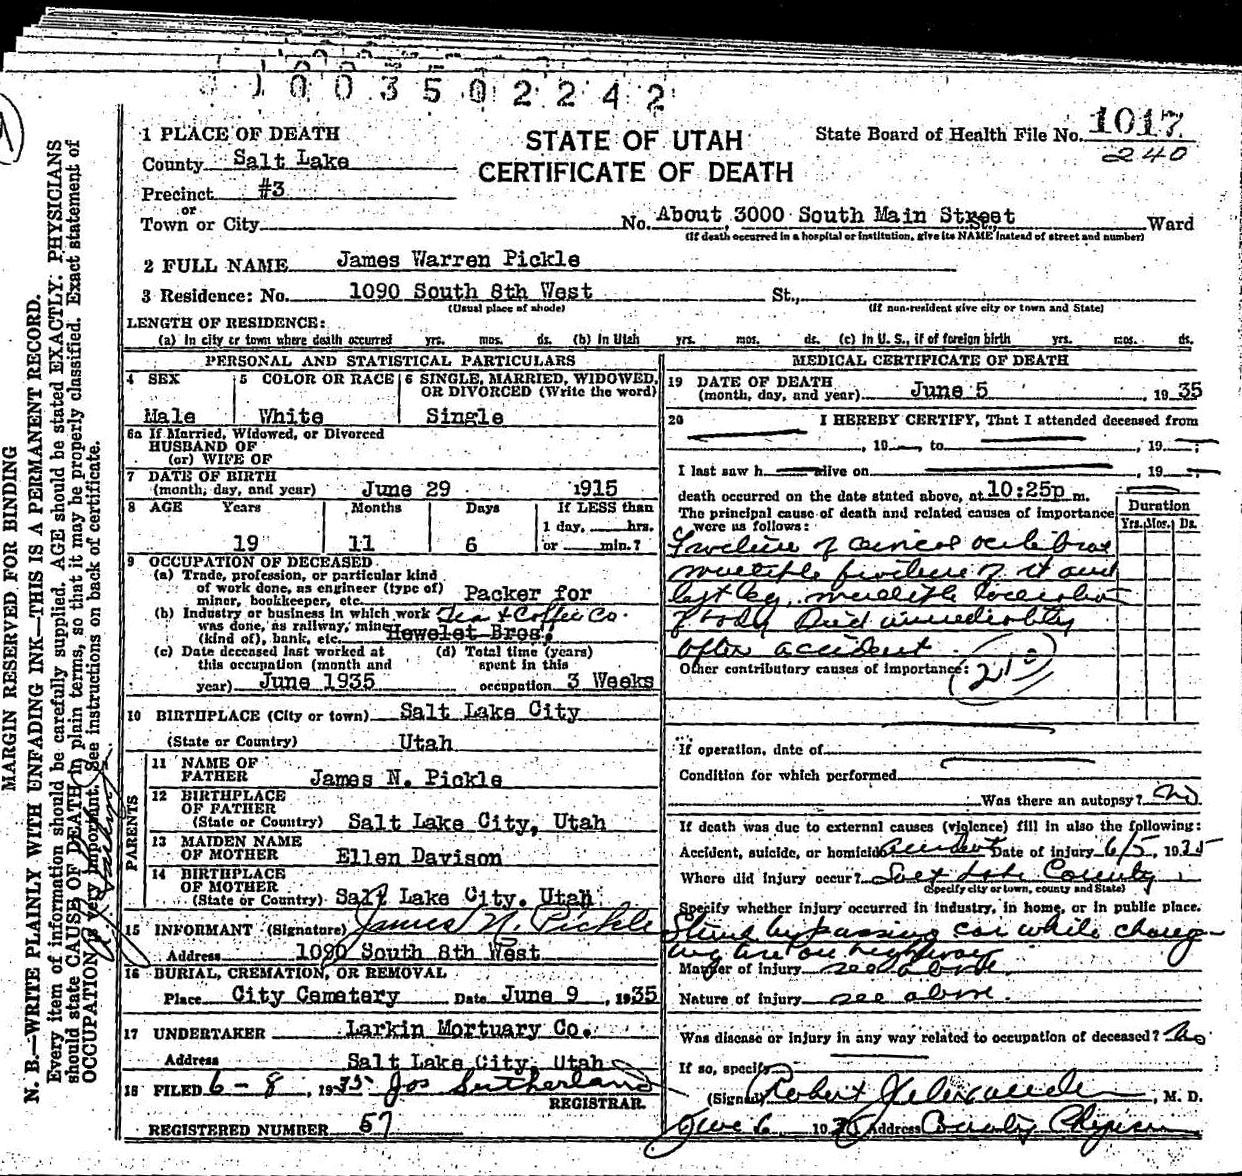 1003502242
1 PLACE OF DEATH
County Salt Lake
Precinct #3
or
Town or City
STATE OF UTAH
CERTIFICATE OF DEATH
State Board of Health File No. 1017
240
No. About 3000 South Main Street St., Ward
(If death occurred in a hospital or institution, give its NAME instead of street and number)
2 FULL NAME James Warren Pickle
3 Residence: No. 1090 South 8th West St.,
(Usual place of abode) (If non-resident give city or town and State)
LENGTH OF RESIDENCE:
(a) In city or town where death occurred yrs. mos. ds. (b) In Utah yrs. mos. ds. (c) In U. S., if of foreign birth yrs. mos. ds.
PERSONAL AND STATISTICAL PARTICULARS
4 SEX Male
5 COLOR OR RACE White
6 SINGLE, MARRIED, WIDOWED, OR DIVORCED (Write the word) Single
6a If Married, Widowed, or Divorced
HUSBAND OF
(or) WIFE OF
7 DATE OF BIRTH
(month, day, and year) June 29 1915
8 AGE Years Months Days If LESS than
1 day, hrs.
19 11 6 or min.?
9 OCCUPATION OF DECEASED
(a) Trade, profession, or particular kind
of work done, as engineer (type of)
minor, bookkeeper, etc. Packer for
(b) Industry or business in which work Tea & Coffee Co.
was done, as railway, mine
(kind of), bank, etc. Hewelet Bros.
(c) Date deceased last worked at
this occupation (month and
year) June 1935
(d) Total time (years)
spent in this
occupation 3 Weeks
10 BIRTHPLACE (City or town) Salt Lake City
(State or Country) Utah
PARENTS
11 NAME OF
FATHER James N. Pickle
12 BIRTHPLACE
OF FATHER
(State or Country) Salt Lake City, Utah
13 MAIDEN NAME
OF MOTHER Ellen Davison
14 BIRTHPLACE
OF MOTHER
(State or Country) Salt Lake City. Utah.
15 INFORMANT (Signature) James N. Pickle
Address 1090 South 8th West
16 BURIAL, CREMATION, OR REMOVAL
Place City Cemetery Date June 9, 1935
17 UNDERTAKER Larkin Mortuary Co.
Address Salt Lake City. Utah
18 FILED 6-8, 1935 Jos Sutherland
REGISTRAR.
REGISTERED NUMBER 57
MEDICAL CERTIFICATE OF DEATH
19 DATE OF DEATH
(month, day, and year) June 5, 1935
20 I HEREBY CERTIFY, That I attended deceased from
, 19 to , 19 ;
I last saw h alive on , 19
death occurred on the date stated above, at 10:25p m.
The principal cause of death and related causes of importance
were as follows:
Duration
Yrs. Mos. Ds.
Fracture of
multiple fracture of rt and
left leg, multiple
of body Died immediately
after accident.
Other contributory causes of importance:
If operation, date of
Condition for which performed
Was there an autopsy? No
If death was due to external causes (violence) fill in also the following:
Accident, suicide, or homicide accident Date of injury 6/5, 1935
Where did injury occur? Salt Lake County
(Specify city or town, county and State)
Specify whether injury occurred in industry, in home, or in public place.
Struck by passing car while chang-
ing tire on highway
Manner of injury see above.
Nature of injury see above.
Was disease or injury in any way related to occupation of deceased? No
If so, specify
(Signed) Robert , M. D.
June 6 19 Address County
MARGIN RESERVED FOR BINDING
N. B.—WRITE PLAINLY WITH UNFADING INK—THIS IS A PERMANENT RECORD.
Every item of information should be carefully supplied. AGE should be stated EXACTLY. PHYSICIANS
should state CAUSE OF DEATH in plain terms, so that it may be properly classified. Exact statement of
OCCUPATION is very important. See instructions on back of certificate.